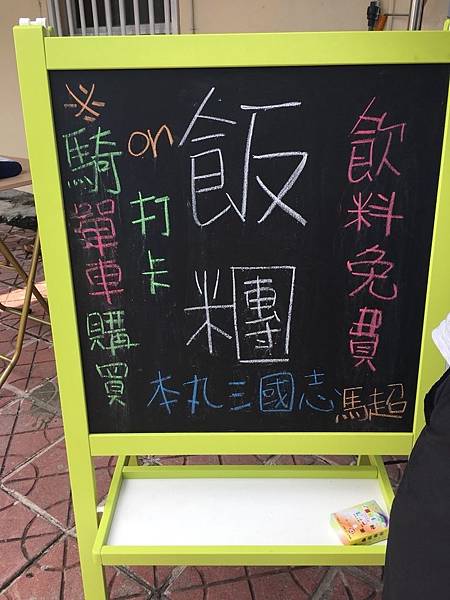 飲料免費
飯糰
※騎單車購買
on打卡
本丸三國志 馮超